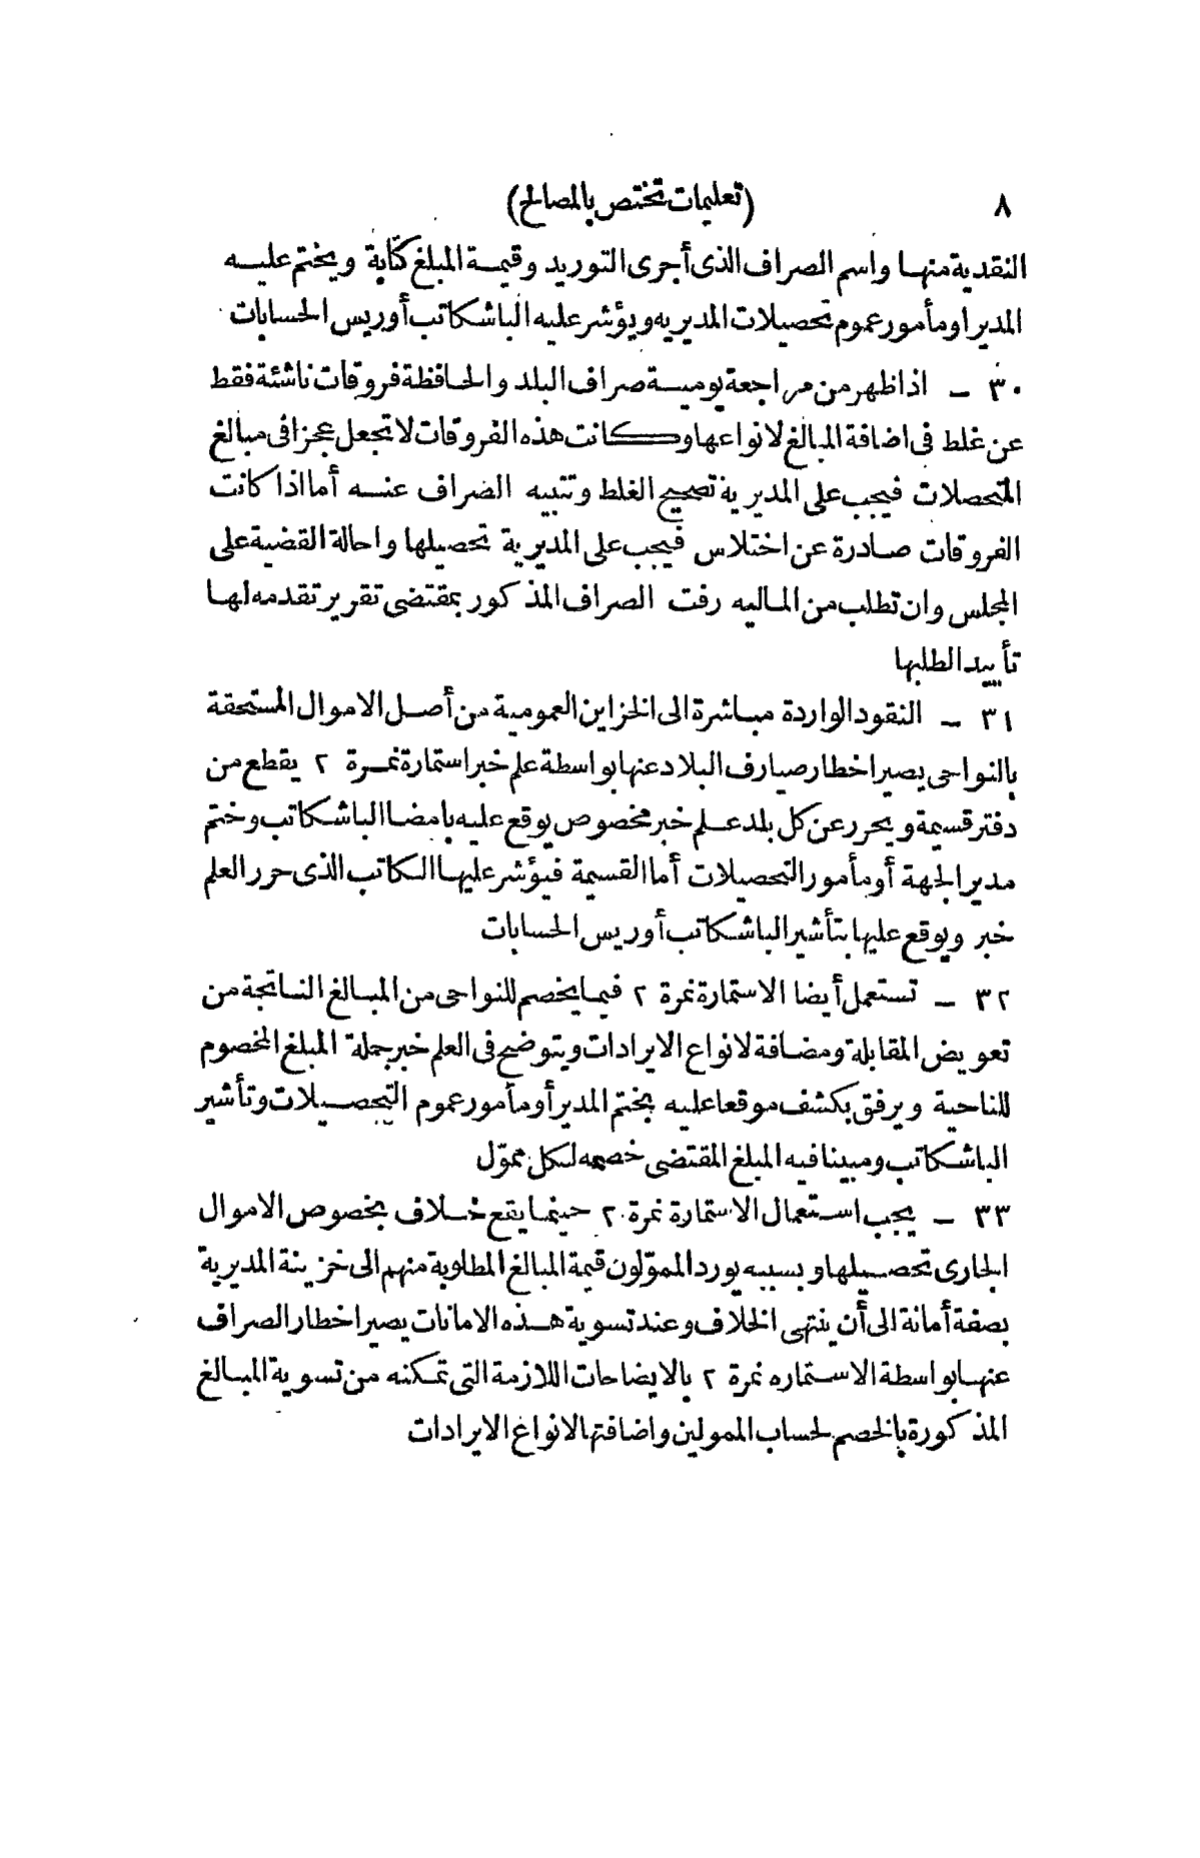 ٨ (تعليمات تختص بالمصالح)
النقدية منها واسم الصراف الذى أجرى التوريد وقيمة المبلغ كتابة ويختم عليه
المدير او مأمور عموم تحصيلات المديريه ويؤشر عليه الباشكاتب أو ريس الحسابات
٣٠ — اذا ظهر من مراجعة يومية صراف البلد والحافظة فروقات ناشئة فقط
عن غلط فى اضافة المبالغ لانواعها وكانت هذه الفروقات لا تجعل عجزا فى مبالغ
المتحصلات فيجب على المديرية تصحيح الغلط وتنبيه الصراف عنه أما اذا كانت
الفروقات صادرة عن اختلاس فيجب على المديرية تحصيلها واحالة القضية على
المجلس وان تطلب من الماليه رفت الصراف المذكور بمقتضى تقرير تقدمه لها
تأييدا لطلبها
٣١ — النقود الواردة مباشرة الى الخزاين العمومية من أصل الاموال المستحقة
بالنواحى يصير اخطار صيارف البلاد عنها بواسطة علم خبر استمارة نمرة ٢ يقطع من
دفتر قسيمة ويحرر عن كل بلد علم خبر مخصوص يوقع عليه بامضا الباشكاتب وختم
مدير الجهة أو مأمور التحصيلات أما القسيمة فيؤشر عليها الكاتب الذى حرر العلم
خبر ويوقع عليها بتأشير الباشكاتب أو ريس الحسابات
٣٢ — تستعمل أيضا الاستمارة نمرة ٢ فيما يخصم للنواحى من المبالغ الناتجة من
تعويض المقابلة ومضافة لانواع الايرادات ويتوضح فى العلم خبر جملة المبلغ المخصوم
للناحية ويرفق بكشف موقعا عليه بختم المدير أو مأمور عموم التحصيلات وتأشير
الباشكاتب ومبينا فيه المبلغ المقتضى خصمه لكل مموّل
٣٣ — يجب استعمال الاستمارة نمرة ٢ حينما يقع خلاف بخصوص الاموال
الجارى تحصيلها وبسببه يورد المموّلون قيمة المبالغ المطلوبة منهم الى خزينة المديرية
بصفة أمانة الى أن ينتهى الخلاف وعند تسوية هذه الامانات يصير اخطار الصراف
عنها بواسطة الاستماره نمرة ٢ بالايضاحات اللازمة التى تمكنه من تسوية المبالغ
المذكورة بالخصم لحساب الممولين واضافتها لانواع الايرادات